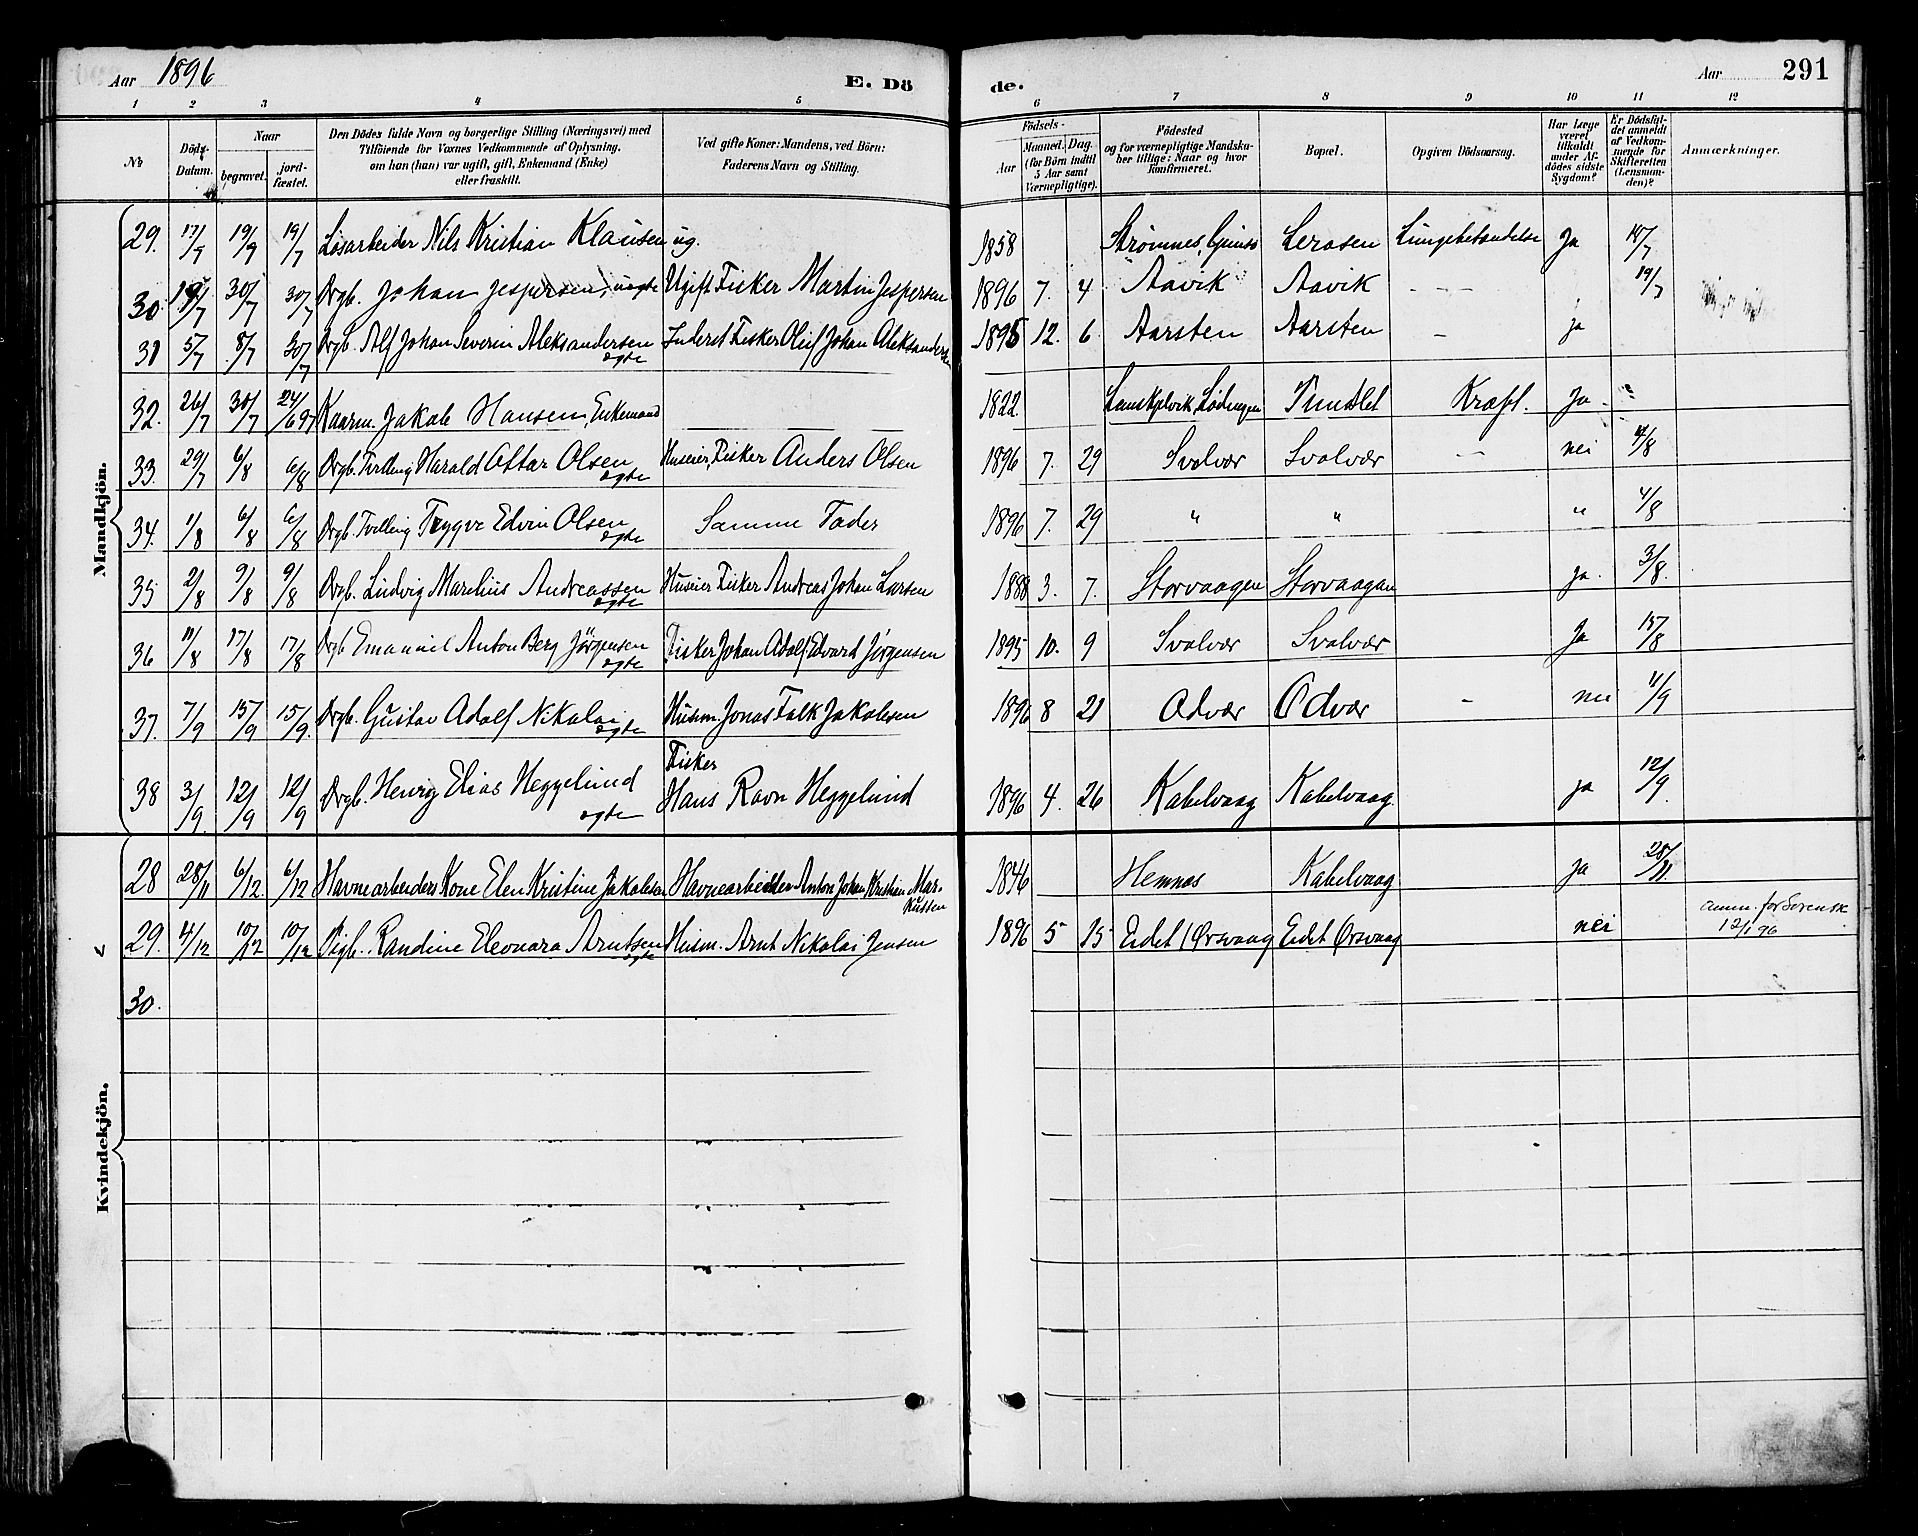 Aar 1896 E. Dö de. Aar 291
1 2 3 4 5 6 7 8 9 10 11 12
No
Döds-Datum.
Naar
begravet. jordfæstet.
Den Dödes fulde Navn og borgerlige Stilling (Næringsvei) med
Tilföiende for Voxnes Vedkommende af Oplysning,
om hun (han) var ugift, gift, Enkemand (Enke)
eller fraskilt.
Ved gifte Koner: Mandens, ved Börn:
Faderens Navn og Stilling.
Födsels-
Aar
Maaned. Dag.
(for Börn indtil
5 Aar samt
Værnepligtige).
Födested
og for værnepligtige Mandskaber tillige: Naar og hvor
konfirmeret.
Bopæl.
Opgiven Dödsaarsag.
Har Læge
været
tilkaldt
under Afdödes sidste
Sygdom?
Er Dödsfaldet anmeldt
af Vedkommende for
Skifteretten
(Lensmanden)?
Anmærkninger.
Mandkjön.
29. 17/7 19/7 19/7 Løsarbeider Nils Kristian Klausen ug. 1858 Strømnes, Lerosen Lungebetændelse Ja 18/7
30. 30/7 30/7 Drgb. Johan Jespersen, uægte Ugift Fisker Martin Jespersen 1896 7. 4 Aavik Aavik - - - 19/7
31 5/7 8/7 30/7 Drgb. Alf Johan Severin Aleksandersen ægte Inderst Fisker Oluf Johan Aleksandersen 1895 12. 6 Aarsten Aarsten - ja
32. 26/7 30/7 24/6 97 Kaarm. Jakob Hansen, Enkemand 1822 Lødingen Kræft. Ja - "
33. 29/7 6/8 6/8 Drgb. Tvilling Harald Ottar Olsen ægte Huseier, Fisker Anders Olsen 1896 7. 29 Svolvær Svolvær - nei 4/8
34. 1/8 6/8 6/8 Drgb. Tvilling Trygve Edvin Olsen ægte Samme Fader 1896 7. 29 " " " 4/8
35 2/8 9/8 9/8 Drgb. Ludvig Marelius Andreassen ægte Huseier Fisker Andreas Johan Larsen 1888 3. 7. Storvaagen Storvaagan ja. 3/8.
36 11/8 17/8 17/8 Drgb Emanuel Anton Berg Jörgensen ægte Fisker Johan Adolf Edvard Jørgensen 1895 10. 9 Svolvær Svolvær Ja 15/8
37. 7/9 15/9 15/9. Drgb. Gustav Adolf Nikolai ægte Husm. Jonas Falk Jakobsen 1896 8 21 Odvær Odvær - nei 11/9
38 3/9. 12/9 12/9 Drgb. Henrig Elias Heggelund ægte Fisker Hans Ravn Heggelund 1896 4. 26 Kabelvaag Kabelvaag. ja 12/9.
Kvindekjön.
28 28/11 6/12 6/12 Havnearbeiders Kone Elen Kristine Jakobsen Havnearbeider Anton Johan Kristian Markussen 1846 Hemnæs Kabelvaag ja 28/11
29. 4/12 10/12 10/12 Pigb. Randine Eleonora Arntsen ægte Husm. Arnt Nikolai Jensen 1896 5 15 Eidet i Ørsvaag Eidet Ørsvaag nei anm. for 12/1 96
30.